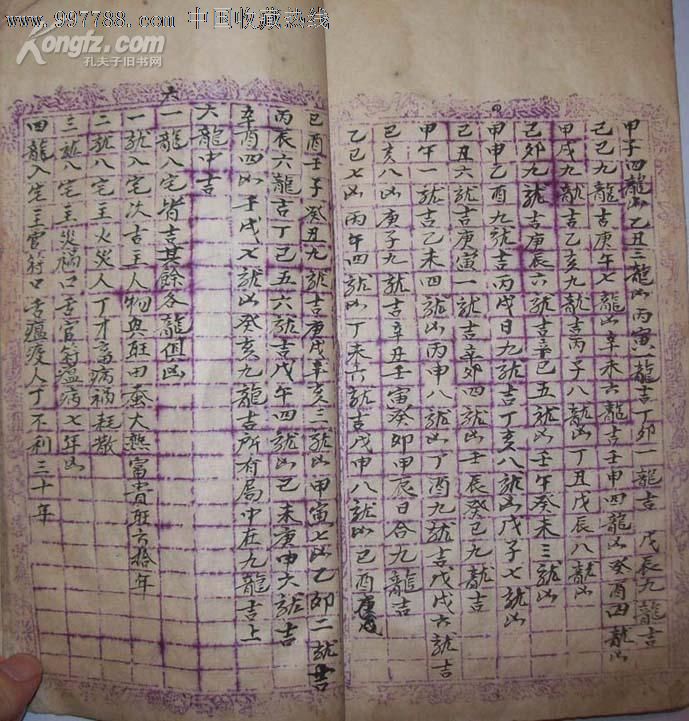 www.997788.com 中国收藏热线
Kongfz.com
孔夫子旧书网
甲子四龍凶乙丑三龍凶丙寅一龍吉丁卯一龍吉戊辰九龍吉
己巳九龍吉庚午七龍凶辛未六龍吉壬申四龍凶癸酉四龍凶
甲戌九龍吉乙亥九龍吉丙子八龍凶丁丑戊辰八龍凶
己卯九號吉庚辰六號吉辛巳五號凶壬午癸未三號凶
甲申乙酉九號吉丙戌日九號吉丁亥八號凶戊子七號凶
己丑六號吉庚寅一號吉辛卯四號凶壬辰癸巳九號吉
甲午一號吉乙未四號凶丙申八號凶丁酉九號吉戊戌六號吉
己亥八凶庚子九號吉辛丑壬寅癸卯甲辰日合九龍吉
乙巳七凶丙午四號凶丁未六號吉戊申八號凶己酉庚戌
己酉壬子癸丑九號吉庚戌辛亥三號凶甲寅七凶乙卯二號吉
丙辰六龍吉丁巳五六號吉戊午四號凶己未庚申六號吉
辛酉四凶壬戌七號凶癸亥九龍吉所有局中在九龍吉上
六龍中吉
六一龍入宅皆吉其餘各龍但凶
一號入宅次吉主人物興旺田蚕大熟富貴旺六拾年
二號入宅主火災人丁才畜病禍耗散
三號入宅主災禍口舌官符瘟病七年凶
四龍入宅主官符口舌瘟疫人丁不利三十年